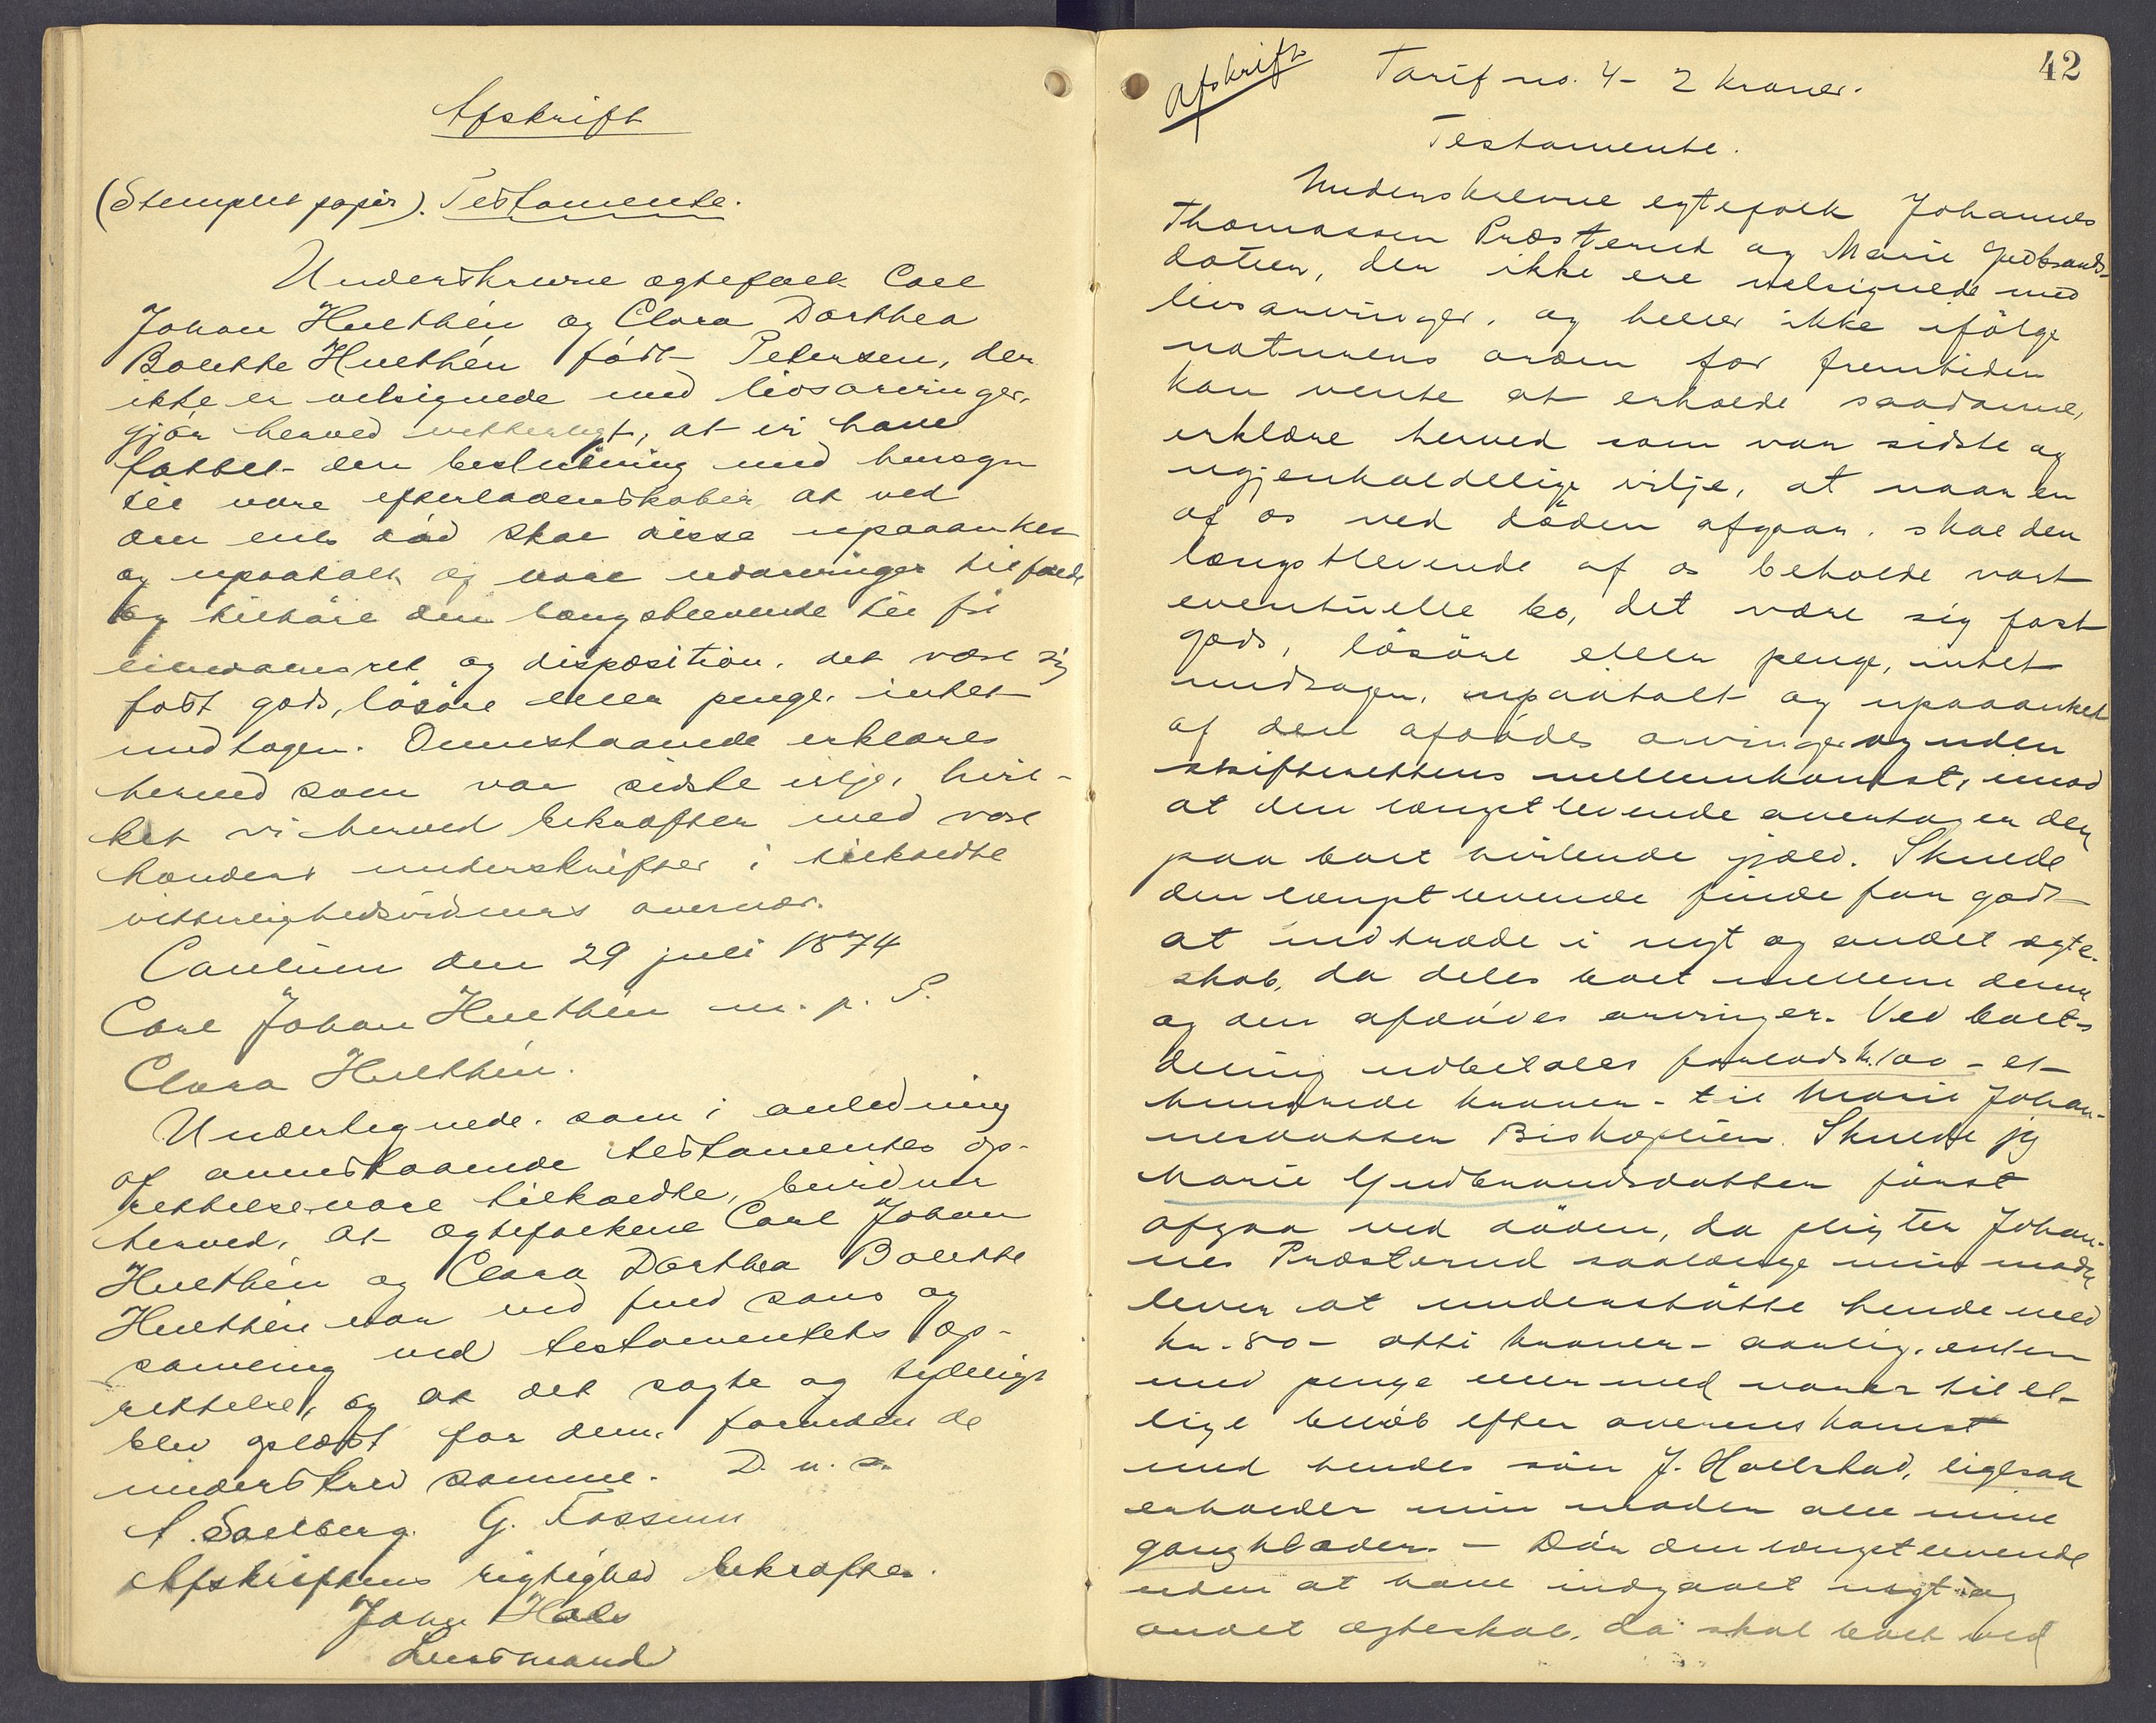 Afskrift
(Stemplet papir). Testamente.
Underskrevne ægtefolk Carl
Johan Hulthén og Clara Dorthea
Bolette Hulthén født Petersen, der
ikke er velsignede med livsarvinger,
gjör herved vitterligt, at vi have
fattet den beslutning med hensyn
til vore efterladenskaber at ved
den enes död skal disse upaaanket
og upaatalt af vore udarvinger tilfalde
og tilhöre den længstlevende til fri
eiendomsret og disposition, det være sig
fast gods, lösöre eller penge, intet
undtagen. Ovenstaaende erklæres
herved som vor sidste vilje, hvil-
ket vi herved bekræfter med vore
hænders underskrifter i tilkaldte
vitterlighedsvidners overvær.
den 29 juli 1874
Carl Johan Hulthén m. p. S.
Clara Hulthén.
Undertegnede, som i anledning
af ovenstaaende testamentes op-
rettelse vare tilkaldte, bevidner
herved, at ægtefolkene Carl Johan
Hulthén og Clara Dorthea Bolette
Hulthén var ved fuld sans og
samling ved testamentets op-
rettelse, og at det sagte og tydeligt
blev oplæst for dem, forinden de
underskrev samme. D. u. s.
A. Solberg. G. Fossum
Afskriftens rigtighed bekræftes.
Johs Hals
Lensmand
42
Afskrift
Tarif no. 4 - 2 kroner.
Testamente.
Underskrevne egtefolk Johannes
Thomassen Præsterud og Marie Gudbrands-
datter, der ikke ere velsignede med
livsarvinger, og heller ikke ifölge
naturens orden for fremtiden
kan vente at erholde saadanne,
erklære herved som vor sidste og
ugjenkaldelige vilje, at naar en
af os ved döden afgaar, skal den
længstlevende af os beholde vort
eventuelle bo, det være sig fast
gods, lösöre eller penge, intet
undtagen, upaatalt og upaaanket
af den afdödes arvinger og uden
skifterettens mellemkomst, imod
at den længstlevende overtager den
paa boet hvilende gjæld. Skulde
den længstlevende finde for godt
at indtræde i nyt og andet ægte-
skab, da deles boet mellem denne
og den afdödes arvinger. Ved boets
deling udbetales forlods kr. 100 - et-
hundrede kroner - til Marie Johan-
nesdatter Biskoplien. Skulde jeg
Marie Gudbrandsdatter först
afgaa ved döden, da pligter Johan-
nes Præsterud saalænge min moder
lever at understötte hende med
kr. 80 - otti kroner - aarlig, enten
med penge eller med varer til et
lige belöb efter overenskomst
med hendes sön J. Hallstad, ligesaa
erholder min moder alle mine
gangklæder. - Dör den længstlevende
uden at have indgaaet nyt og
andet ægteskab, da skal boet ved